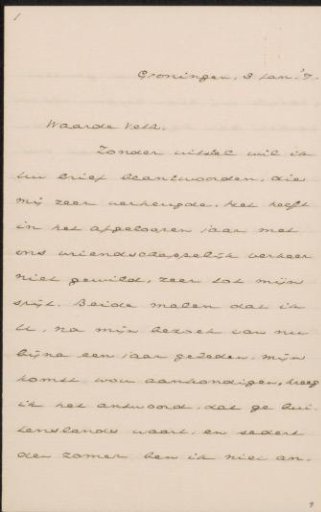 1
Groningen, 3 Jan. '7.
Waarde Veth.
Zonder uitstel wil ik
Uw brief beantwoorden, die
mij zeer verheugde. Het heeft
in het afgeloopen jaar met
ons vriendschappelijk verkeer
niet gewild, zeer tot mijn
spijt. Beide malen dat ik
U, na mijn bezoek van nu
bijna een jaar geleden, mijn
komst wou aankondigen, kreeg
ik het antwoord, dat ge bui-
tenslands waart, en sedert
den zomer ben ik niet an-